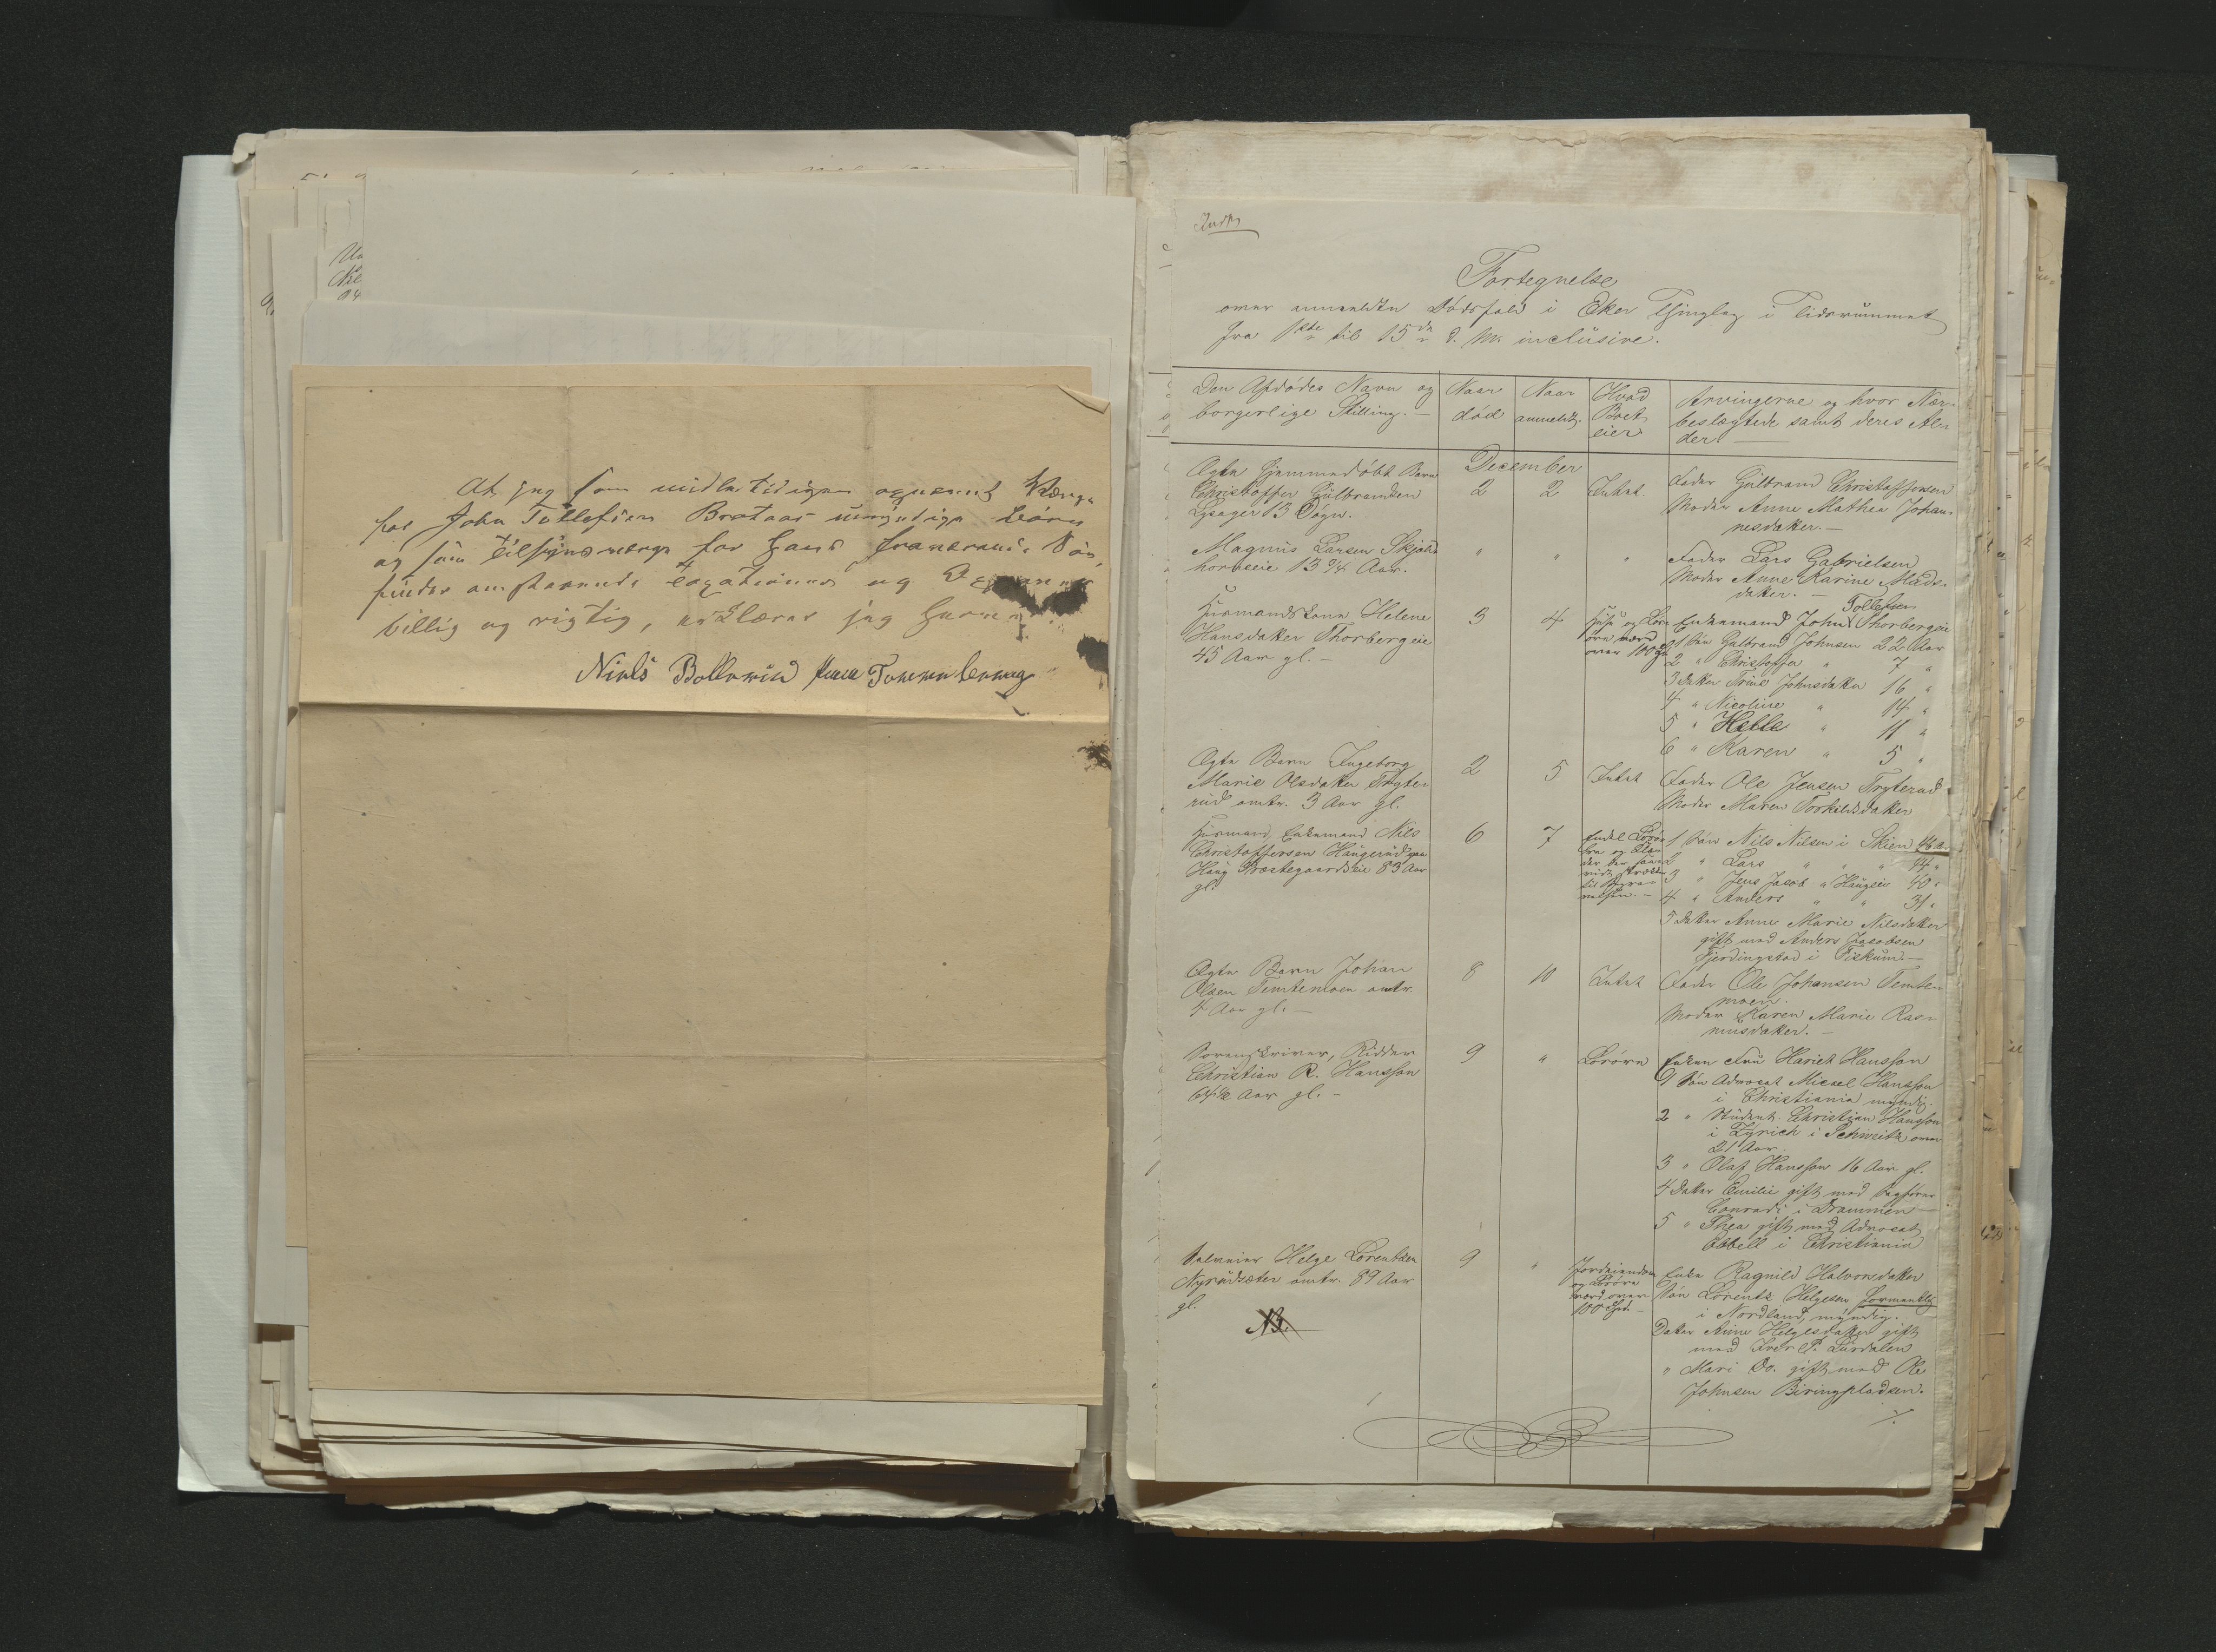 At jeg som midlertidigen opnævnt Værge
for John Tollefsen Brataas umyndige Børn
og som Tilsynsværge for hans fraværende Søn,
finder omstaaende Taxationer og
billig og rigtig, erklærer jeg herved.
Niels Bollerud
Fortegnelse
over anmeldte Dødsfald i Eker Thinglag i Tidsrummet
fra 1ste til 15de d. M. inclusive.
Den Afdødes Navn og
borgerlige Stilling. —
Naar
død
Naar
anmeldt.
Hvad
Boet
eier
Arvingerne og hvor Nær-
beslægtede samt deres Al-
der. —
December
Ægte hjemmedøbt Barn
Christoffer Gulbrandsen
Lysager 13 Døgn.
2
2
Intet.
Fader Gulbrand Christoffersen
Moder Anne Mathea Johan-
nesdatter. —
Magnus Larsen Skjøl
horneie 13 3/4 Aar.
"
"
"
Fader Lars Gabrielsen
Moder Anne Karine Mads-
datter. —
Husmandskone Helene
Hansdatter Thorbergeie
45 Aar gl. —
3
4
Huse og Løs-
øre værd
over 100 Spd
Enkemand John Tollefsen Thorbergeie
1 Søn Gulbrand Johnsen 22 Aar
2 " Christoffer " 7 "
3 Datter Trine Johnsdatter 16 "
4 " Nicoline " 14 "
5 " Helle " 11 "
6 " Karen " 5 "
Ægte Barn Ingeborg
Marie Olsdatter Tryte-
rud omtr. 3 Aar gl.
2
5
Intet
Fader Ole Jensen Tryterud
Moder Maren Torkildsdatter
Husmand, Enkemand Nils
Christoffersen Haugerud
Haug Præstegaardseie 83 Aar
gl.
6
7
Endel Løsø-
re og
til Begra-
velsen. —
1 Søn Nils Nilsen i Skien 46 Aar
2 " Lars " " " 44 "
3 " Jens Jacob " Haugeie 40 "
4 " Anders " " 31 "
5 Datter Anne Marie Nilsdatter
gift med Anders Jacobsen
Gjerdingstad i Fiskum. —
Ægte Barn Johan
Olsen Temtemoen omtr.
4 Aar gl. —
8
10
Intet
Fader Ole Johansen Temte-
moen.
Moder Karen Marie Ras-
musdatter. —
Sorenskriver, Ridder
Christian R. Hansson
64 1/2 Aar gl. —
9
"
Løsøre
Enken Fru Hariet Hansson
1 Søn Advocat Micael Hansson
i Christiania myndig.
2 " Student Christian Hansson
i Zyrich i Schweitz over
21 Aar.
3 " Olaf Hansson 16 Aar gl.
4 Datter Emilie gift med Sagfører
Conradi i Drammen —
5 " Thea gift med Advocat
Obbell i Christiania
Selveier Helge Lorentsen
Nyrudsæter omtr. 89 Aar
gl.
9
"
Jordeiendom
og Løsøre
værd over
100 Spd. —
Enke Ragnild Halvorsdatter
Søn Lorents Helgesen formentlig
i Nordland, myndig. —
Datter Anne Helgesdatter gift
med Iver P. Lurdalen
" Mari Do. gift med Ole
Johnsen Biringpladsen.
NB.